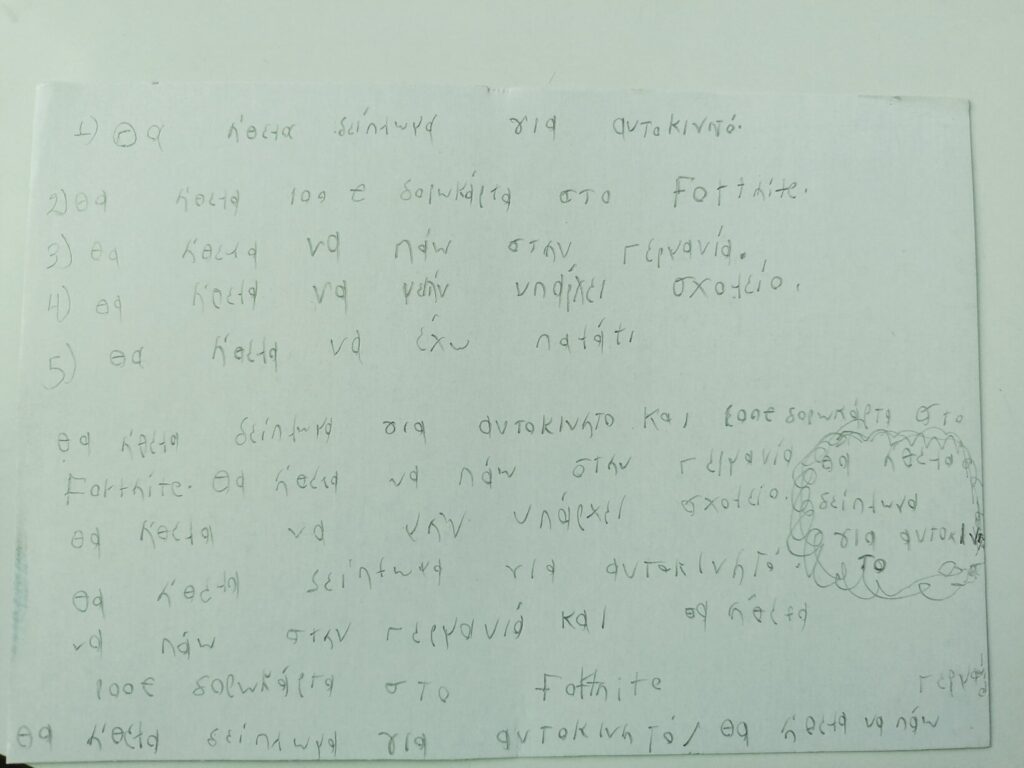 1) Θα ήθελα δείπλωμα για αυτοκινητό.
2) θα ήθελα 100 € δορωκάρτα στο Fortnite.
3) θα ήθελα να πάω στην Γερμανία.
4) θα ήθελα να μείν υπάρχει σχολείο.
5) θα ήθελα να έχω πατάτι
θα ήθελα δείπλωμα για αυτοκινητο και 100€ δορωκάρτα στο
Fortnite. θα ήθελα να πάω στην Γερμανία
θα ήθελα να μην υπάρχει σχολείο.
θα ήθελα δείπλωμα για αυτοκινητό.
να πάω στην Γερμανιά και θα ήθελα
100€ δορωκάρτα στο Fortnite
θα ήθελα δείπλωμα για αυτοκινητό/ θα ήθελα να πάω
θα ήθελα
δείπλωμα
για αυτοκινη
το